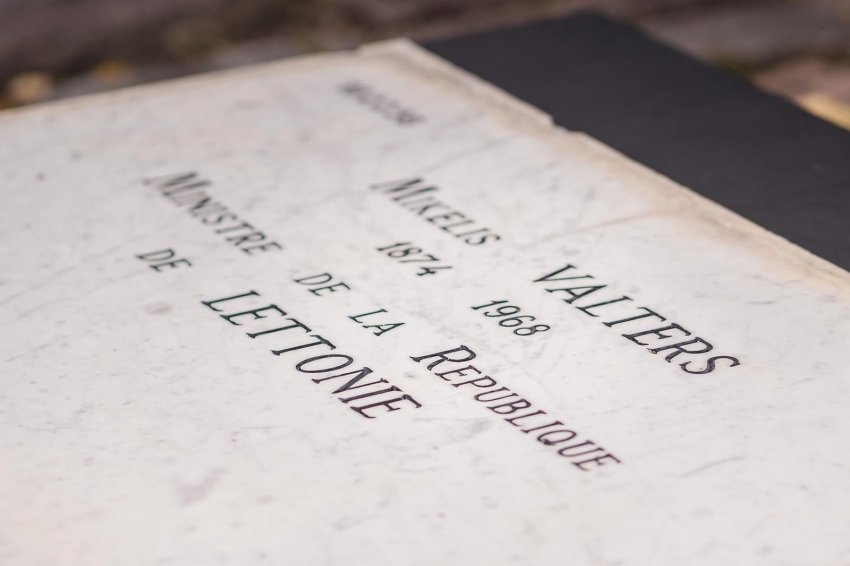 MIKELIS VALTERS
1874 1968
MINISTRE DE LA REPUBLIQUE
DE LETTONIE